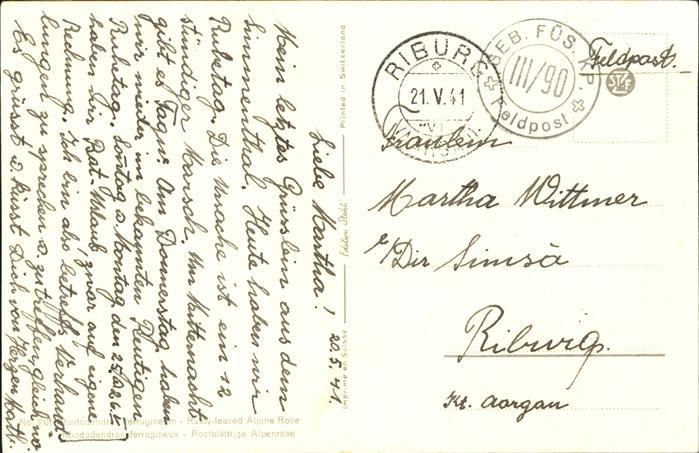 Liebe Martha!
20.5.41.
Mein letztes Grüsslein aus dem
Simmenthal. Heute haben wir
Ruhetag. Die Ursache ist ein 12
stündiger Marsch. Um Mitternacht
gibt es Tagw. Am Donnerstag haben
wir wieder im bekannten
Ruhetag. Sontag a Montag, den 25./26.5.
haben wir Rat-Urlaub zwar auf eigene
Rechnung. Ich bin also betreffs
zu sprechen o. zu treffen gleich wo.
Es grüsst & küsst Dich von Herzen
Printed in Switzerland
Edition Stehli
Imprimé en Suisse
Rhododendron ferrugineum - Rusty-leaved Alpine Rose
Rhododendron ferrugineux - Rostblättrige Alpenrose
RIBURG
21.V.41
GEB. FÜS. KP.
III/90
Feldpost
Feldpost.
Fräulein
Martha Wittmer
Riburg.
Kt. Aargau